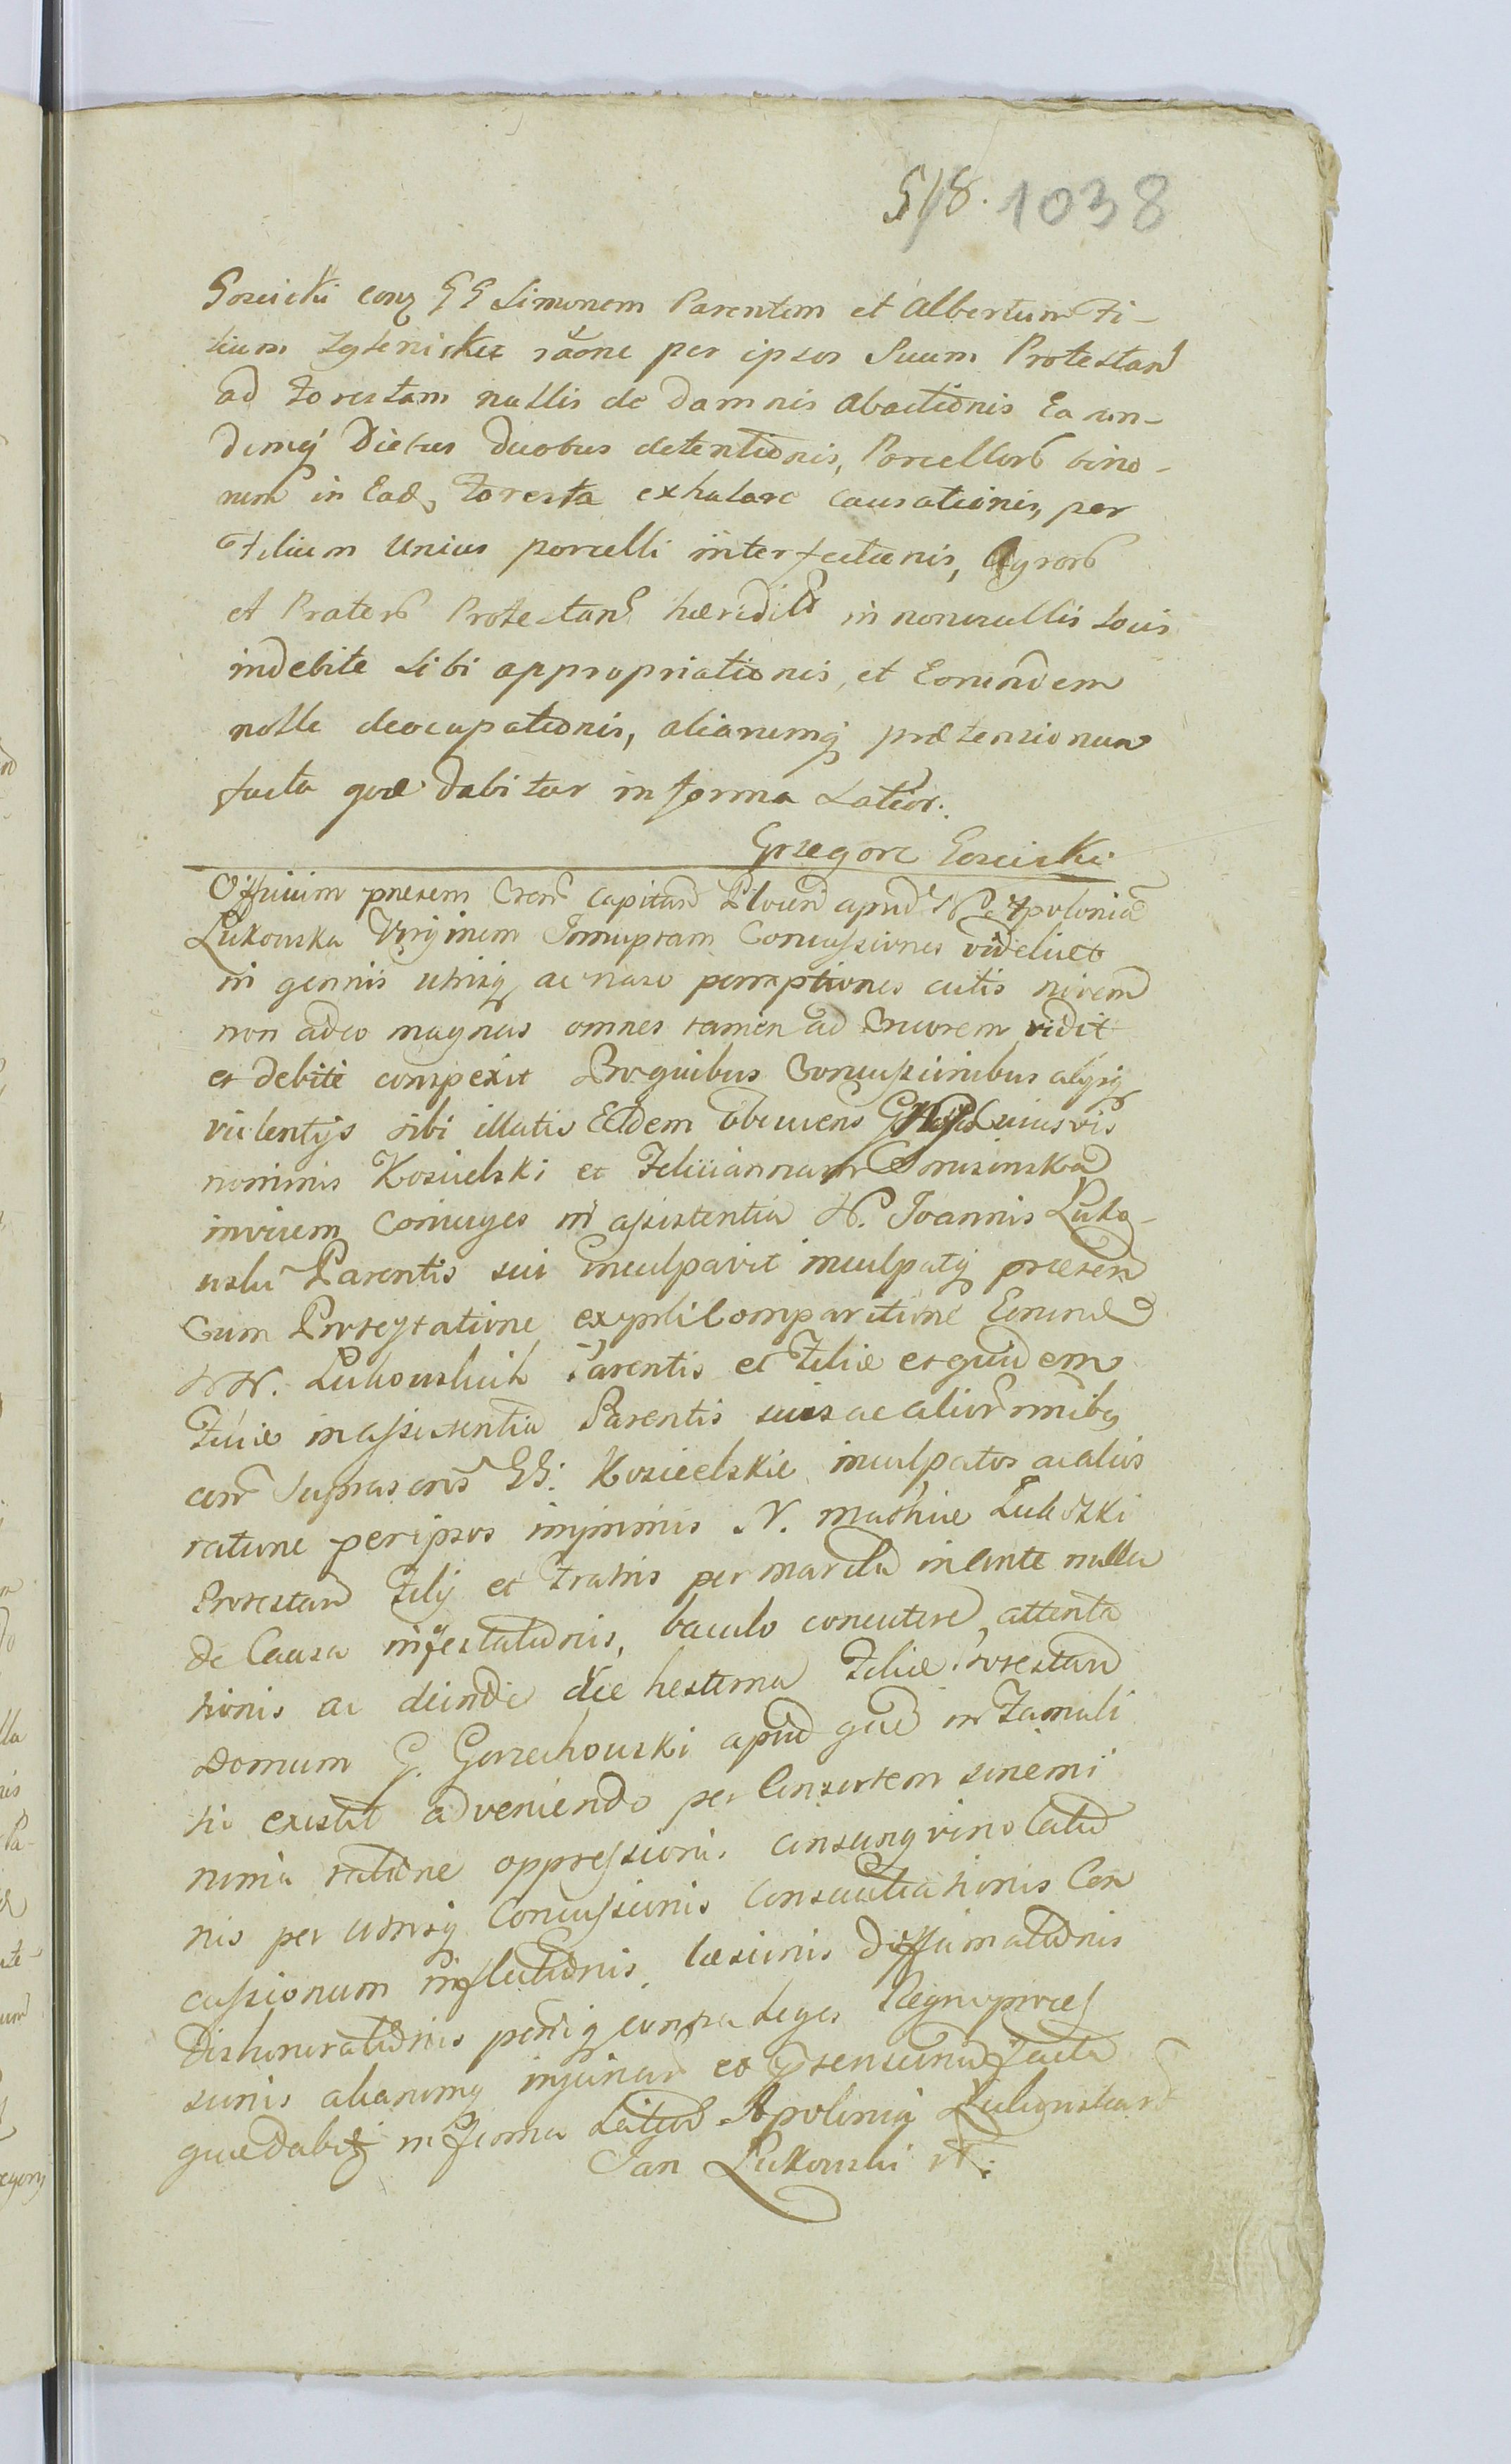 518. 1038
Gosciski conq GG Simonem Parentem et Albertum Fi-
lium raone per ipsos Suum Protestan
ad Forestam nullis de damnis abactionis Earun-
demq Diebus duobus detentionis, Porcellorb bino-
rum in Ead Foresta exhalare causationis, per
Filium Unius porcelli interfectionis, Agrorb
et Pratorb Protestan hæredit in nonnullis Locis
indebite Sibi appropriationis, et Eorundem
nolle deocupationis, aliarumq prætensionum
facta quæ dabitur in forma Latior.
Grzegorz Gosciski
Officium præsens Cren Capitan apud N Apolonia
Lukowska Virginem Innuptam Concussiones videlicet
in gennis utrisq ac naso perruptiones cutis
non adeo magnas omnes tamen ad Cruorem vidit
et debite conspexit Pro quibus Concussionibus alysq
violentijs sibi illatis Eadem obducens G cuiusvis
nominis Kosielski et Feliciannam
invicem Coniuges in asistentia N. Joannis Luko-
wski Parentis sui inculpavit inculpatq præsen
Cum Protestatione ex Comparitione Eorund
NN. Lukowskich Parentis et Filiæ et quidem
Filiæ in assistentia Parentis sui ac alior omnibq
con Suprascrip GG: Kosielskie inculpatos ac alios
ratione per ipsos inprimis N. Mathiæ Lukoski
Protestan Filij et Fratris per
de Causa infestationis, baculo concutere attenta
tionis ac deinde die hesterna Filiæ Protestan
Domum G. Gorzechowski apud que in Famuli
tio existit adveniendo per Consortem
nima ratione oppressioni.
nis per utrosq Concussionis Con
cussionum inflictionis, læsionis Diffamationis
Dishonorationis contra Leges Regni
sionis aliarumq injuriar et prætensionu facta
quæ dabitq in Forma Latior Apolinia Lukowska
Jan Lukowski